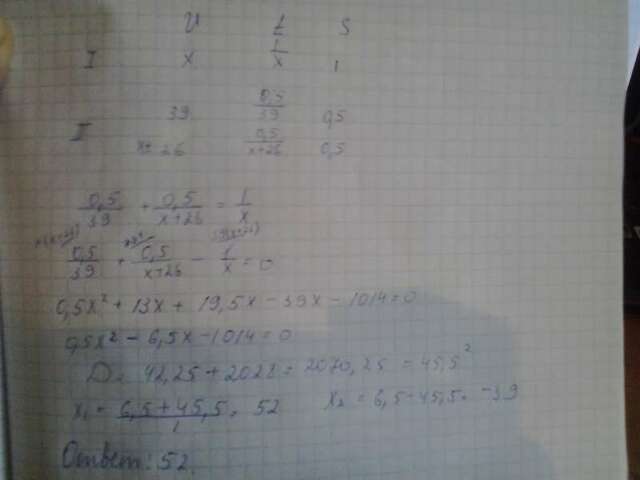 v t S
I x 1/x 1
39 0,5/39 0,5
II
x+26 0,5/(x+26) 0,5
0,5/39 + 0,5/(x+26) = 1/x
0,5/39 + 0,5/(x+26) - 1/x = 0
0,5x² + 13x + 19,5x - 39x - 1014 = 0
0,5x² - 6,5x - 1014 = 0
D = 42,25 + 2028 = 2070,25 = 45,5²
x₁ = (6,5 + 45,5)/1 = 52 x₂ = 6,5 - 45,5 = -39
Ответ: 52.